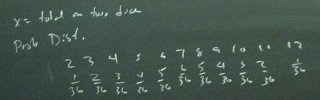 x = total on two dice
Prob. Dist.
2 3 4 5 6 7 8 9 10 11 12
1/36 2/36 3/36 4/36 5/36 6/36 5/36 4/36 3/36 2/36 1/36